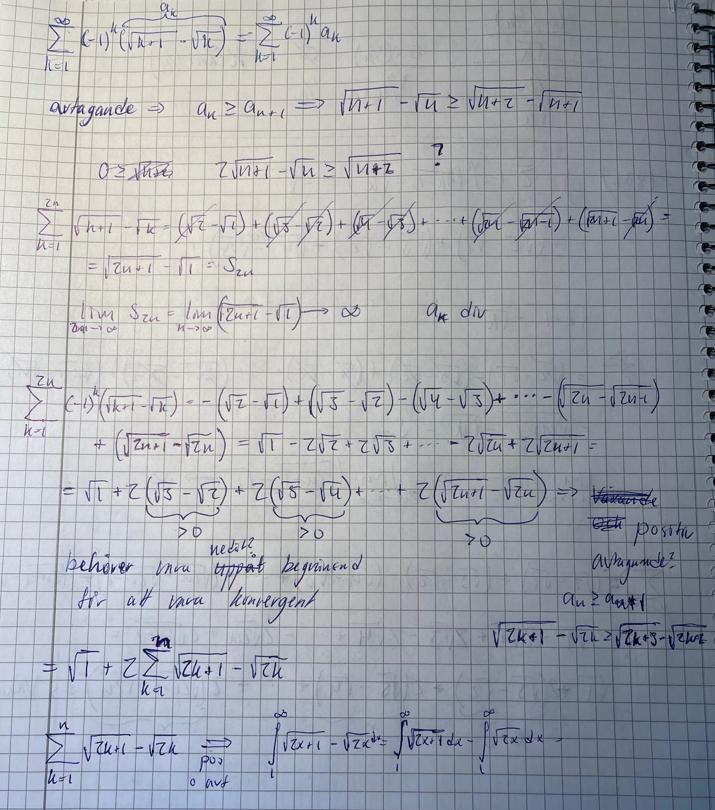 a_k
∞ ∑ k=1 (-1)^k (√k+1 - √k) = ∞ ∑ k=1 (-1)^k a_k
avtagande ⇒ a_n ≥ a_{n+1} ⇒ √n+1 - √n ≥ √n+2 - √n+1
0 ≥ 2√n+1 - √n ≥ √n+2 ?
2n ∑ k=1 √k+1 - √k = (√2 - √1) + (√3 - √2) + (√4 - √3) + ··· + (√2n - √2n-1) + (√2n+1 - √2n) =
= √2n+1 - √1 = S_{2n}
lim S_{2n} = lim n→∞ (√2n+1 - √1) → ∞ a_k div
2n ∑ k=1 (-1)^k (√k+1 - √k) = -(√2 - √1) + (√3 - √2) - (√4 - √3) + ··· - (√2n - √2n-1)
+ (√2n+1 - √2n) = √1 - 2√2 + 2√3 + ··· - 2√2n + 2√2n+1 =
= √1 + 2(√3 - √2) + 2(√5 - √4) + ··· + 2(√2n+1 - √2n) ⇒ Växande
>0 >0 >0
och positiv
behöver vara uppåt nedåt? begränsad
avtagande?
för att vara konvergent
a_n ≥ a_{n+1}
√2k+1 - √2k ≥ √2k+3 - √2k+2
= √1 + 2 ∑ k=1 √2k+1 - √2k
n ∑ k=1 √2k+1 - √2k ⇒ ∞ ∫ 1 √2x+1 - √2x dx = ∞ ∫ 1 √2x+1 dx - ∞ ∫ 1 √2x dx =
pos
o avt